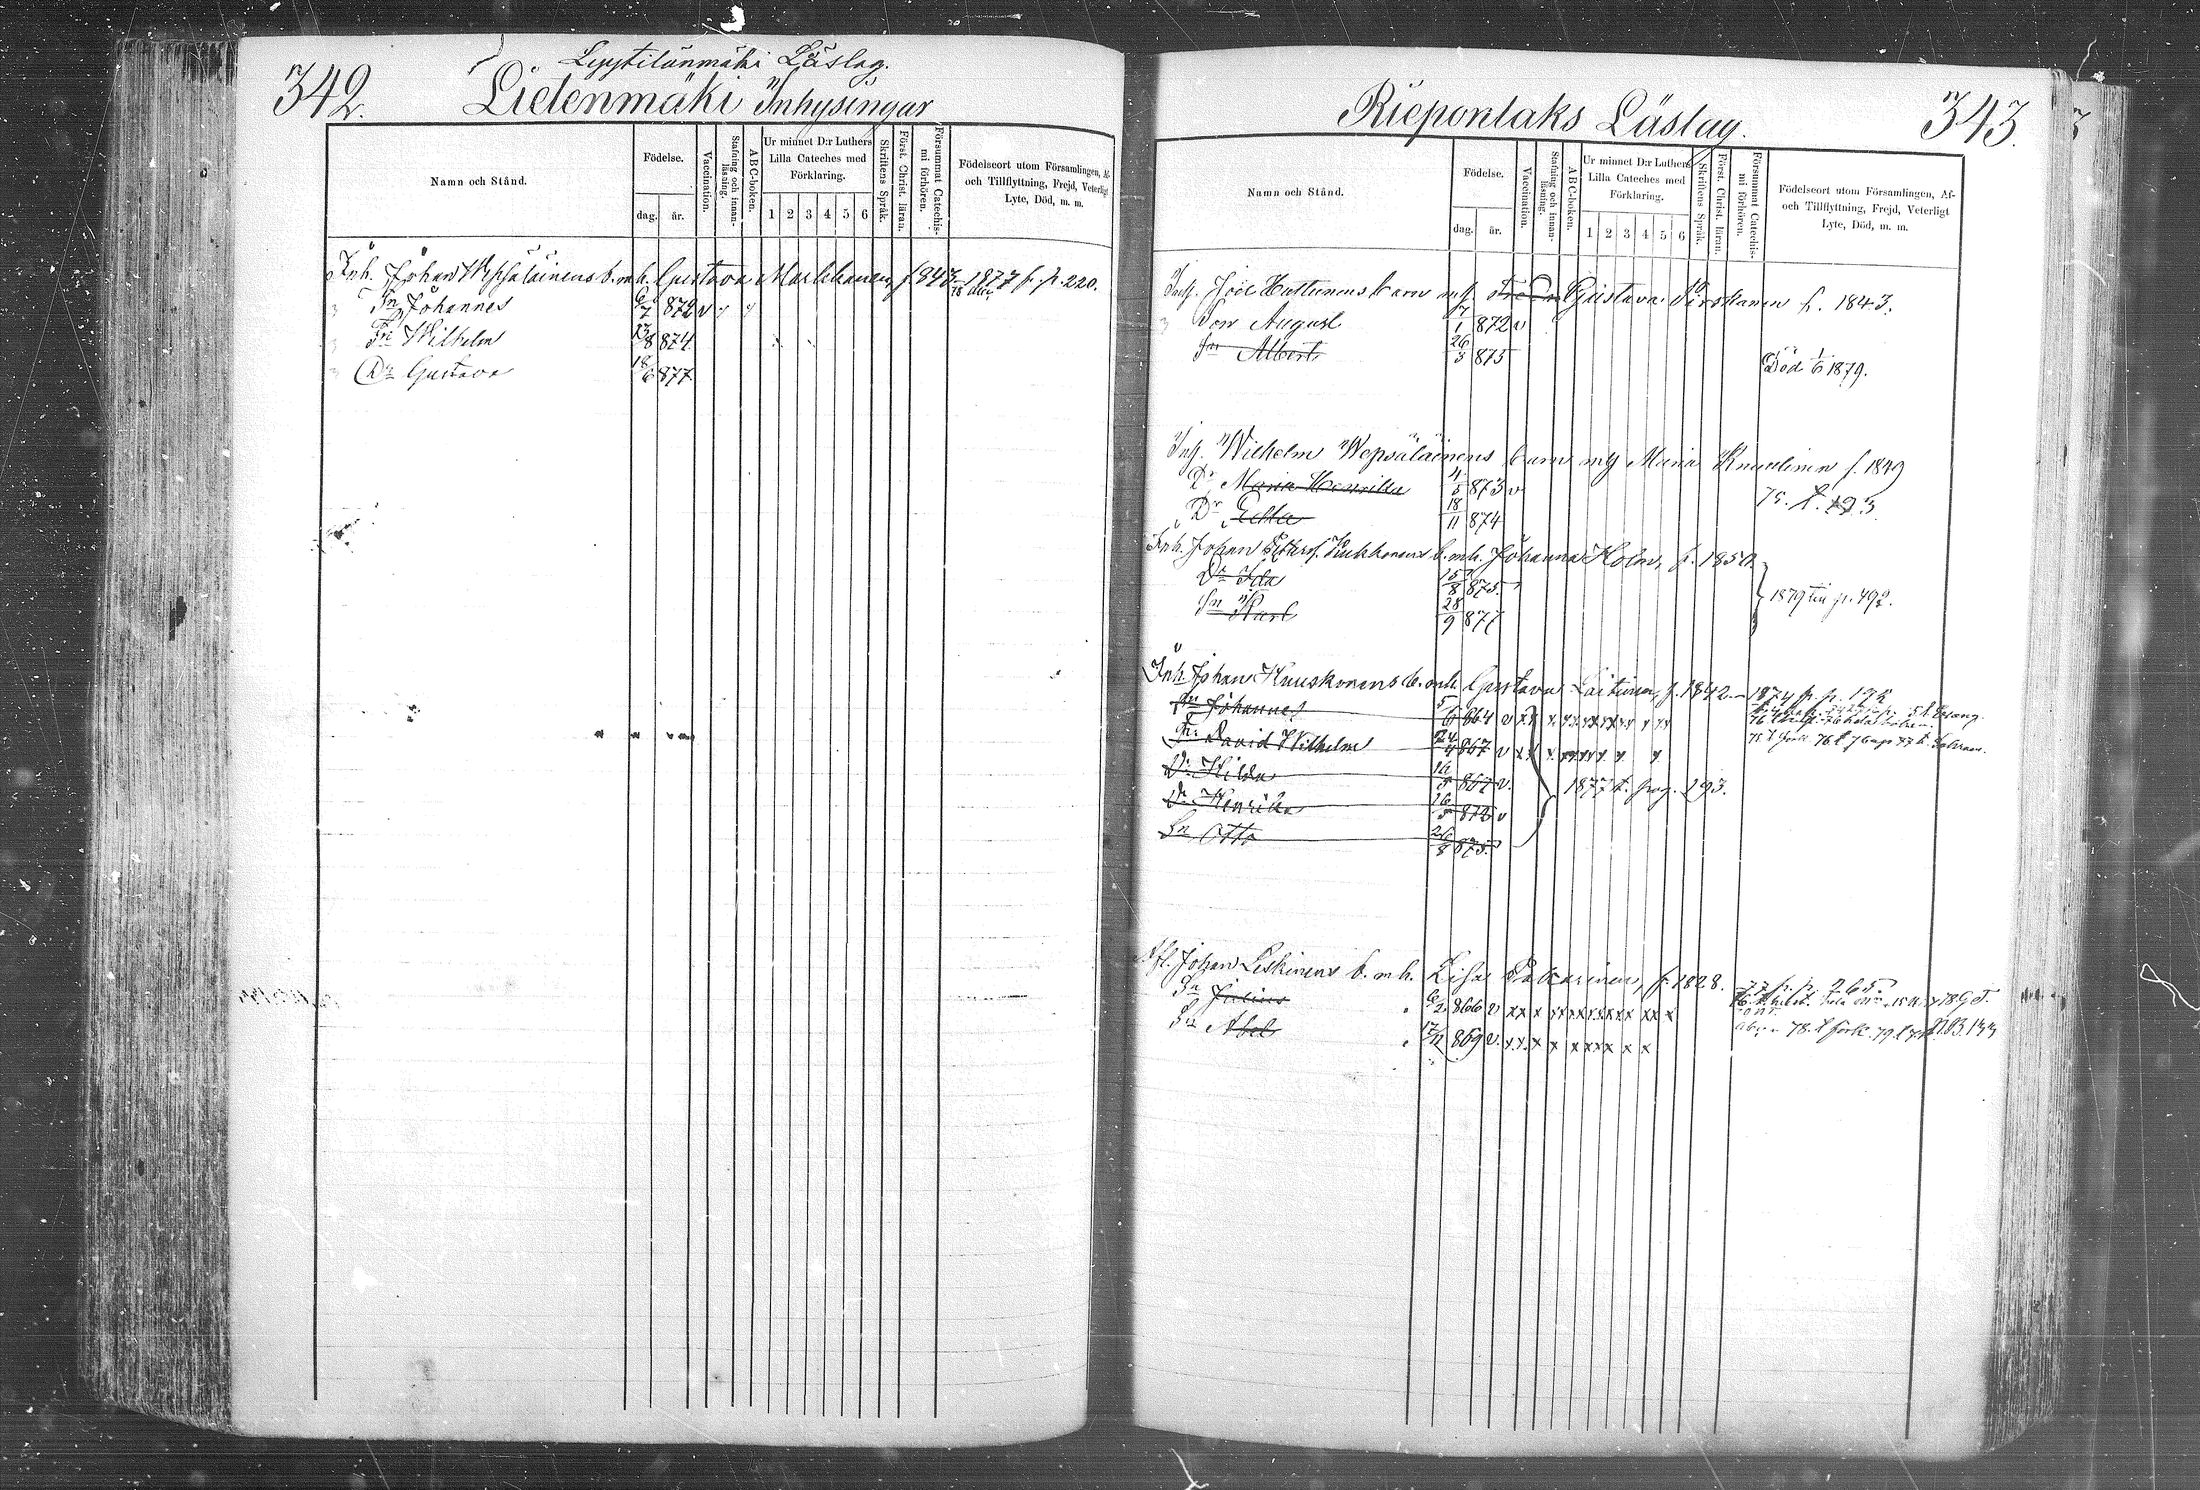 342.
Lyytilänmäki Läslag.
Lietenmäki Inhysingar
Namn och Stånd.
Födelse.
dag.
år.
Vaccination.
Stafning och innan-
läsning.
ABC-boken.
Ur minnet D:r Luthers
Lilla Cateches med
Förklaring.
1 2 3 4 5 6
Skriftens Språk.
Först. Christ. läran.
Försummat Catechis-
mi förhören.
Födelseort utom Församlingen, Af-
och Tillflyttning, Frejd, Veterligt
Lyte, Död, m. m.
Inh. Johan Wepsäläinens b. m. h. Gustava Markkanen, f. 843 1877 fr. p. 220.
Sn Johannes 6/7 872 v
Sn Wilhelm 23/8 874
Dr Gustava 18/6 877
Riepontaks Läslag.
343.
Namn och Stånd.
Födelse.
dag.
år.
Vaccination.
Stafning och innan-
läsning.
ABC-boken.
Ur minnet D:r Luthers
Lilla Cateches med
Förklaring.
1 2 3 4 5 6
Skriftens Språk.
Först. Christ. läran.
Försummat Catechis-
mi förhören.
Födelseort utom Församlingen, Af-
och Tillflyttning, Frejd, Veterligt
Lyte, Död, m. m.
Inh. Joel Huttunens barn m. h. Gustava f. 1843.
Son August 7/1 872 v
Sn Albert 26/3 875 Död 1/6 1879.
Inh. Wilhelm Wepsäläinens barn m h Maria f. 1849
Dr Maria Henrika 4/5 873 v 75. t. 193
Dr 18/11 874
Inh. Johan b. m. h. Johanna Holm, f. 1850.
Dr Ida 15/8 875
Sn Karl 28/9 877 1879 till p. 492.
Inh. Johan Kuuskonens b. m h. Gustava Laitinen, f. 1842 1874 fr. p.
Sn Johannes 5/6 864 v x x x x x x x x x x x
Sn David Wilhelm 24/4 867 v x x x x x x x x x
Dr Hilda 867 v. 1877 t. pag. 293.
Dr Henrika 16/5 872 v
Sn Otto 26/8 875.
Afl. Johan Leskinens b. m. h. Lisa Pakarinen, f. 1828. 77 fr. p. 265.
Sn Julius 6/2 866 v x x x x x x x x x x x
Sn Abel 17/11 869 v. x x x x x x x x x